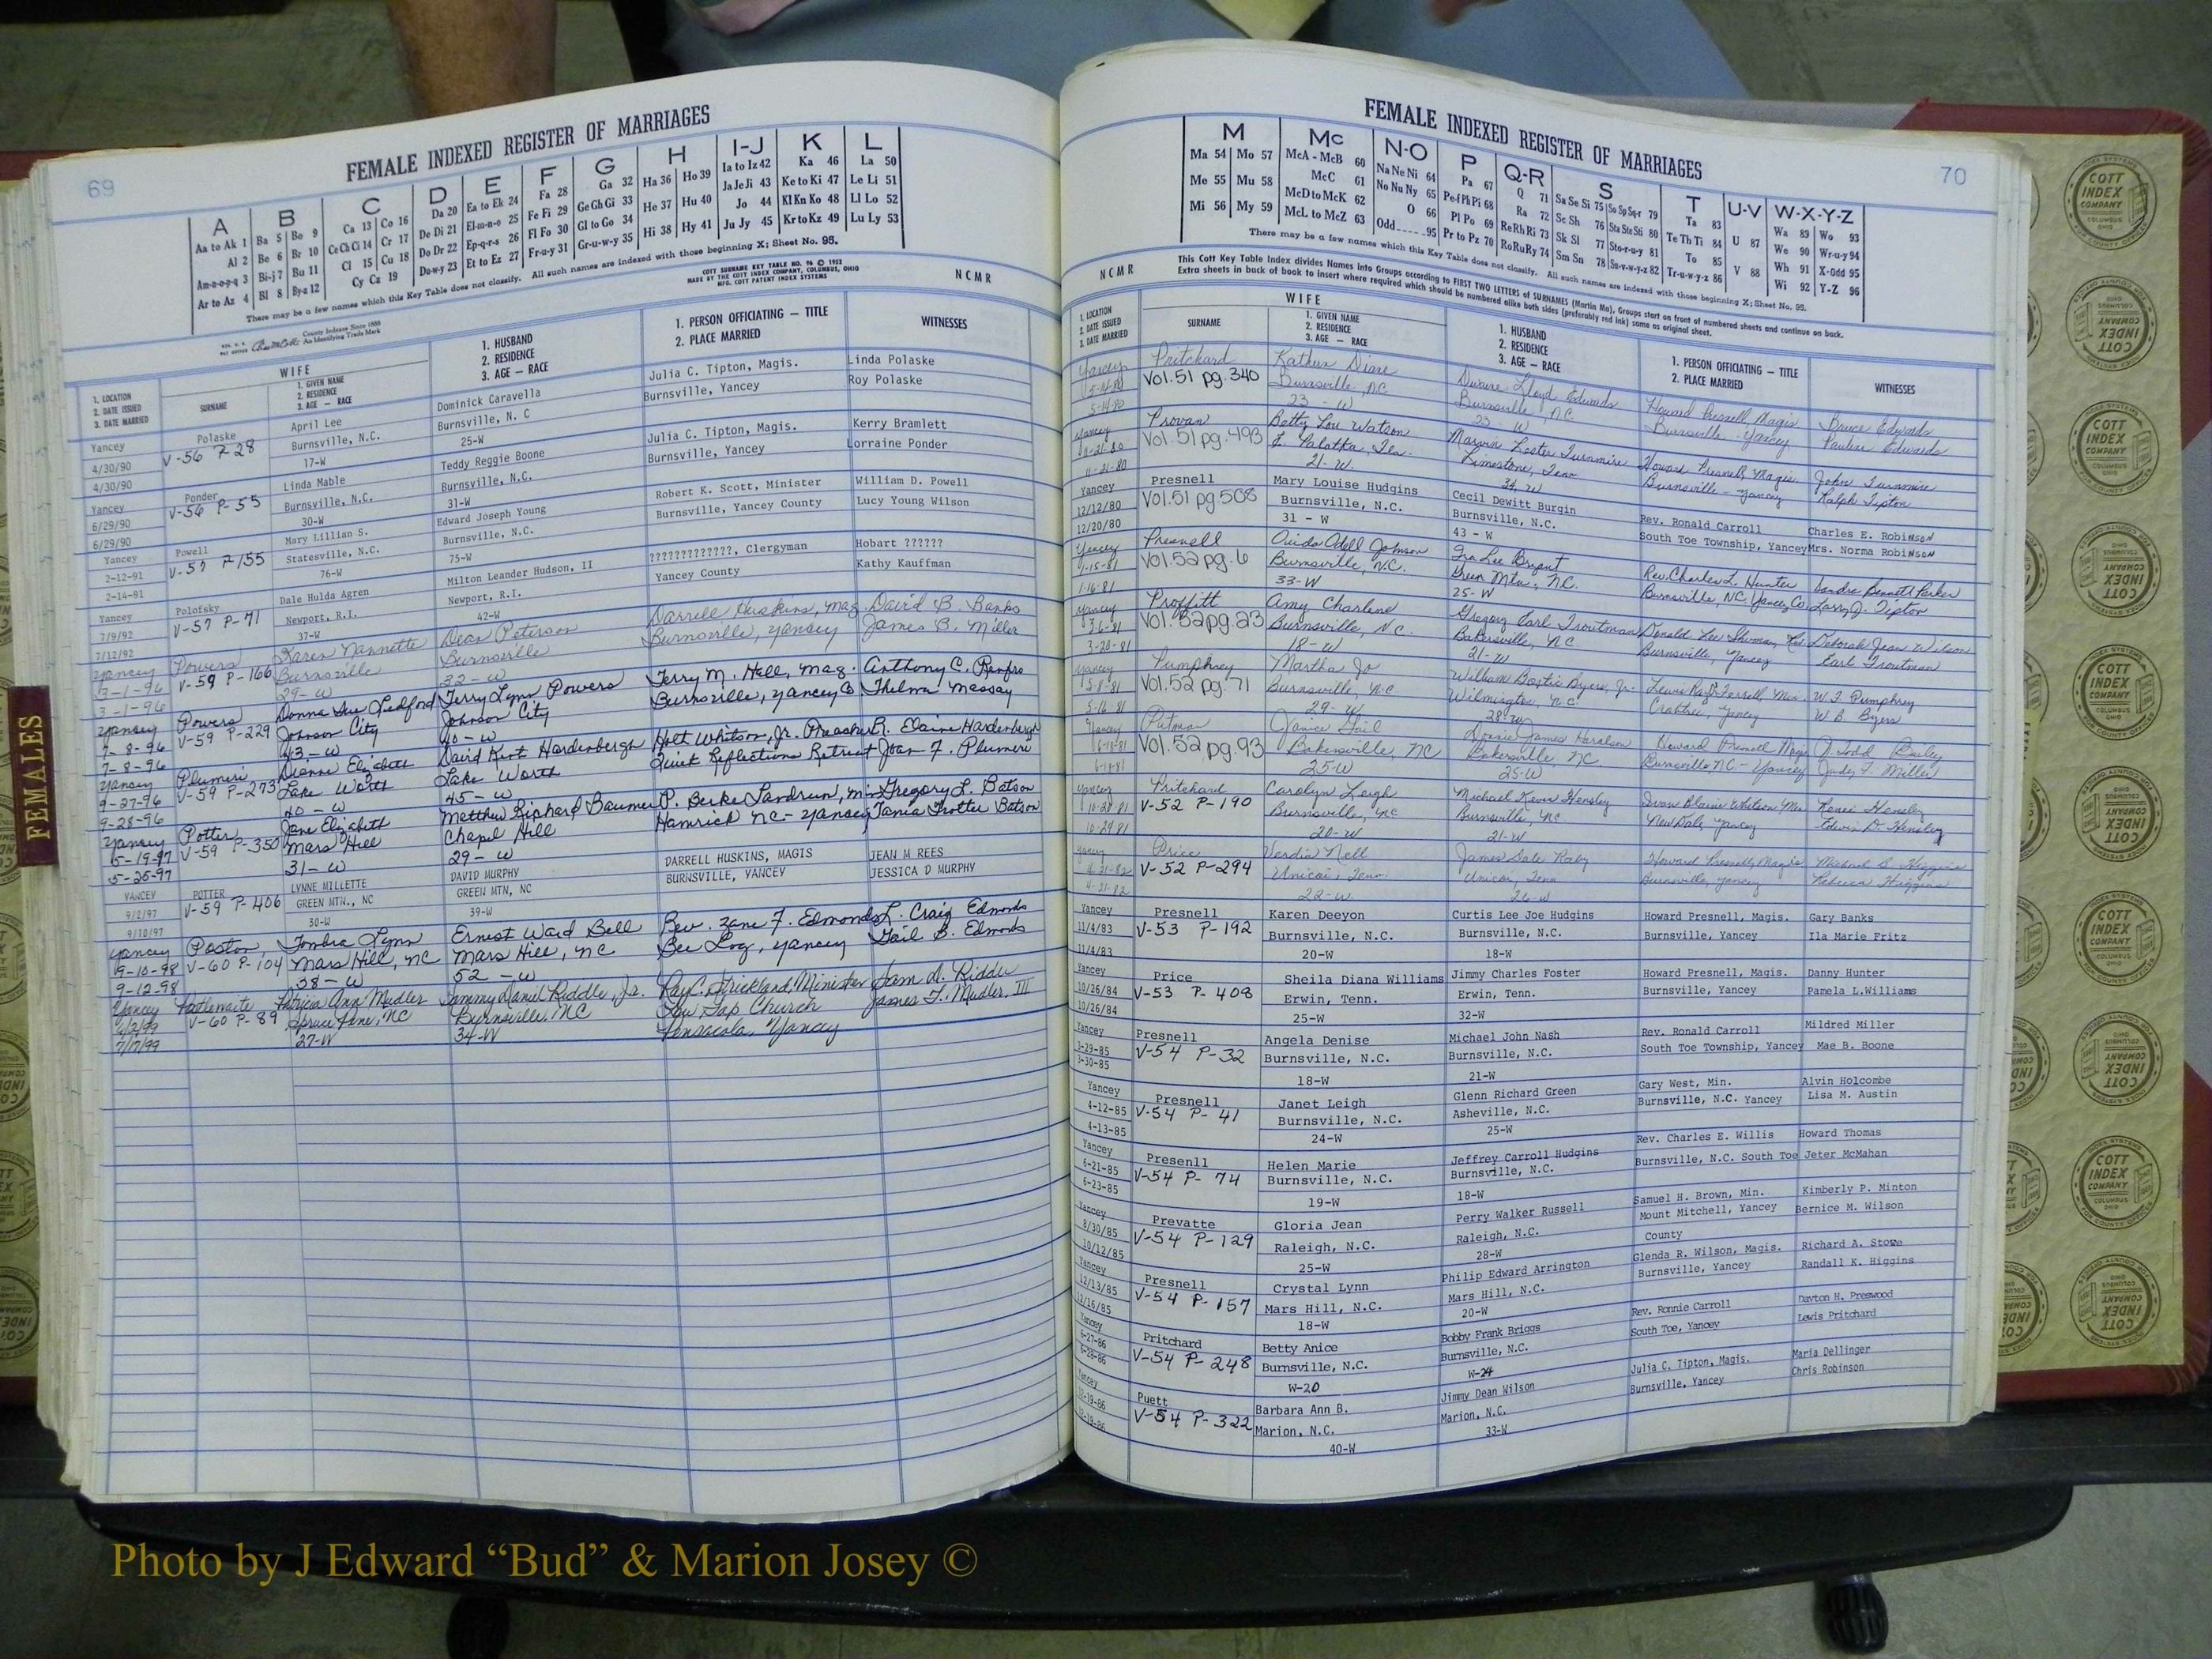 69
FEMALE INDEXED REGISTER OF MARRIAGES
A B C D E F G H I-J K L
Aa to Ak 1 Ba 5 Bo 9 Ca 13 Co 16 Da 20 Ea to Ek 24 Fa 28 Ga 32 Ha 36 Ho 39 Ia to Iz 42 Ka 46 La 50
Al 2 Be 6 Br 10 Ce Ch Ci 14 Cr 17 De Di 21 El-m-n-o 25 Fe Fi 29 Ge Gh Gi 33 He 37 Hu 40 Ja Je Ji 43 Ke to Ki 47 Le Li 51
Am-n-o-p-q 3 Bi-j 7 Bu 11 Cl 15 Cu 18 Do Dr 22 Ep-q-r-s 26 Fl Fo 30 Gl to Go 34 Hi 38 Hy 41 Jo 44 Kl Kn Ko 48 Ll Lo 52
Ar to Az 4 Bl 8 By-z 12 Cy Cz 19 Du-w-y 23 Et to Ez 27 Fr-u-y 31 Gr-u-w-y 35 Ju Jy 45 Kr to Kz 49 Lu Ly 53
There may be a few names which this Key Table does not classify. All such names are indexed with those beginning X; Sheet No. 95.
COTT SURNAME KEY TABLE NO. 96 © 1952
MADE BY THE COTT INDEX COMPANY, COLUMBUS, OHIO
MFG. COTT PATENT INDEX SYSTEMS
N C M R
County Indexes Since 1888
An Identifying Trade Mark
1. LOCATION
2. DATE ISSUED
3. DATE MARRIED
WIFE
SURNAME
1. GIVEN NAME
2. RESIDENCE
3. AGE — RACE
1. HUSBAND
2. RESIDENCE
3. AGE — RACE
1. PERSON OFFICIATING — TITLE
2. PLACE MARRIED
WITNESSES
Yancey Polaske April Lee Dominick Caravella Julia C. Tipton, Magis. Linda Polaske
4/30/90 V-56 P 28 Burnsville, N.C. Burnsville, N. C Burnsville, Yancey Roy Polaske
4/30/90 17-W 25-W
Yancey Ponder Linda Mable Teddy Reggie Boone Julia C. Tipton, Magis. Kerry Bramlett
6/29/90 V-56 P-55 Burnsville, N.C. Burnsville, N.C. Burnsville, Yancey Lorraine Ponder
6/29/90 30-W 31-W
Yancey Powell Mary Lillian S. Edward Joseph Young Robert K. Scott, Minister William D. Powell
2-12-91 V-57 P/55 Statesville, N.C. Burnsville, N.C. Burnsville, Yancey County Lucy Young Wilson
2-14-91 76-W 75-W
Yancey Polofsky Dale Hulda Agren Milton Leander Hudson, II ?????????????, Clergyman Hobart ??????
7/9/92 V-57 P-71 Newport, R.I. Newport, R.I. Yancey County Kathy Kauffman
7/12/92 37-W 42-W
Yancey Powers Karen Nannette Dean Peterson Darrell Huskins, Mag. David B. Banks
3-1-96 V-59 P-166 Burnsville Burnsville Burnsville, Yancey James B. Miller
3-1-96 29-W 32-W
Yancey Powers Donna Sue Ledford Terry Lynn Powers Jerry M. Hall, Mag. Anthony C. Renfro
7-8-96 V-59 P-229 Johnson City Johnson City Burnsville, Yancey Co Thelma Massay
7-8-96 43-W 40-W
Yancey Plumeri Dianne Elizabeth David Kent Hardenbergh Holt Whitson, Jr. Preacher R. Elaine Hardenbergh
9-27-96 V-59 P-273 Lake Worth Lake Worth Quiet Reflections Retreat Joan F. Plumeri
9-28-96 40-W 45-W
Yancey Potter Jane Elizabeth Matthew Richard Baumer P. Berke Landrum, Min Gregory L. Batson
5-19-97 V-59 P-350 Mars Hill Chapel Hill Hamrick NC-Yancey Tania Trotter Batson
5-25-97 31-W 29-W
YANCEY POTTER LYNNE MILLETTE DAVID MURPHY DARRELL HUSKINS, MAGIS JEAN M REES
9/2/97 V-59 P-406 GREEN MTN., NC GREEN MTN, NC BURNSVILLE, YANCEY JESSICA D MURPHY
9/10/97 30-W 39-W
Yancey Poston, Tondra Lynn Ernest Ward Bell Rev. Zane F. Edmonds L. Craig Edmonds
9-10-98 V-60 P-104 Mars Hill, NC Mars Hill, NC Bee Log, Yancey Gail B. Edmonds
9-12-98 38-W 52-W
Yancey Patricia Ann Mudler Sammy Daniel Riddle, Jr. Ray C. Strickland, Minister Sam D. Riddle
V-60 P-89 Spruce Pine, NC Burnsville, NC Low Gap Church James F. Mudler III
7/17/99 27-W 34-W Pensacola, Yancey
FEMALES
70
FEMALE INDEXED REGISTER OF MARRIAGES
M Mc N-O P Q-R S T U-V W-X-Y-Z
Ma 54 Mo 57 McA - McB 60 Na Ne Ni 64 Pa 67 Q 71 Sa Se Si 75 So Sp Sq-r 79 Ta 83 Wa 89 Wo 93
Me 55 Mu 58 McC 61 No Nu Ny 65 Pe-f Ph Pi 68 Ra 72 Sc Sh 76 Sta Ste Sti 80 Te Th Ti 84 U 87 We 90 Wr-u-y 94
Mi 56 My 59 McD to McK 62 O 66 Pl Po 69 Re Rh Ri 73 Sk Sl 77 Sto-r-u-y 81 To 85 Wh 91 X-Odd 95
McL to McZ 63 Odd 95 Pr to Pz 70 Ro Ru Ry 74 Sm Sn 78 Su-v-w-y-z 82 Tr-u-w-y-z 86 V 88 Wi 92 Y-Z 96
There may be a few names which this Key Table does not classify. All such names are indexed with those beginning X; Sheet No. 95.
N C M R
This Cott Key Table Index divides Names into Groups according to FIRST TWO LETTERS of SURNAMES (Martin Ma), Groups start on front of numbered sheets and continue on back.
Extra sheets in back of book to insert where required which should be numbered alike both sides (preferably red ink) same as original sheet.
1. LOCATION
2. DATE ISSUED
3. DATE MARRIED
WIFE
SURNAME
1. GIVEN NAME
2. RESIDENCE
3. AGE — RACE
1. HUSBAND
2. RESIDENCE
3. AGE — RACE
1. PERSON OFFICIATING — TITLE
2. PLACE MARRIED
WITNESSES
Yancey Pritchard Diane Dwaine Lloyd Edwards Howard Presnell, Magis. Bruce Edwards
5-14-80 Vol.51 pg.340 Burnsville, NC Burnsville, N.C. Burnsville - Yancey Pauline Edwards
5-14-80 23-W 23-W
Yancey Provan Betty Lou Watson Marvin Lester Turnmire Howard Presnell, Magis. John Turnmire
11-21-80 Vol.51 pg.493 E. Palatka, Limestone, Tenn Burnsville - Yancey Ralph Tipton
11-21-80 21-W 34-W
Yancey Presnell Mary Louise Hudgins Cecil Dewitt Burgin Rev. Ronald Carroll Charles E. Robinson
12/12/80 Vol.51 pg 508 Burnsville, N.C. Burnsville, N.C. South Toe Township, Yancey Mrs. Norma Robinson
12/20/80 31 - W 43 - W
Yancey Presnell Ouida Odell Johnson Ira Lee Bryant Rev. Charles L. Hunter Sandra Bennett Parker
1-15-81 Vol.52 pg.6 Burnsville, N.C. Green Mtn., N.C. Burnsville, NC. Yancey Co Larry J. Tipton
1-16-81 33-W 25-W
Yancey Proffitt Amy Charlene Gregory Earl Troutman Donald Lee Shuman, Rev. Deborah Jean Wilson
3-6-81 Vol.52 pg.23 Burnsville, N.C. Bakersville, N.C. Burnsville, Yancey Earl Troutman
3-20-81 18-W 21-W
Yancey Pumphrey Martha Jo William Bostic Byers, Jr. Lewis Ray Ferrell, Min. W.F. Pumphrey
5-8-81 Vol.52 pg.71 Burnsville, N.C Wilmington, N.C. Crabtree, Yancey W B. Byers
5-16-81 29-W 28-W
Yancey Putman Janice Gail James Haralson Howard Presnell Magis Bailey
6-18-81 Vol.52 pg.93 Bakersville, NC Bakersville, NC Burnsville, N.C.- Yancey Judy F. Miller
6-18-81 25-W 25-W
Yancey Pritchard Carolyn Leigh Michael Kevin Hensley Ivan Blaine Whitson, Min Renee Hensley
10-28-81 V-52 P-190 Burnsville, NC Burnsville, NC Newdale, Yancey Edwin D. Hensley
10-29-81 20-W 21-W
Yancey Price Verdia Nell James Dale Raby Howard Presnell, Magis Michael D. Higgins
4-21-82 V-52 P-294 Unicoi, Tenn. Unicoi, Tenn Burnsville, Yancey Rebecca Higgins
4-21-82 22-W 26-W
Yancey Presnell Karen Deeyon Curtis Lee Joe Hudgins Howard Presnell, Magis. Gary Banks
11/4/83 V-53 P-192 Burnsville, N.C. Burnsville, N.C. Burnsville, Yancey Ila Marie Fritz
11/4/83 20-W 18-W
Yancey Price Sheila Diana Williams Jimmy Charles Foster Howard Presnell, Magis. Danny Hunter
10/26/84 V-53 P-408 Erwin, Tenn. Erwin, Tenn. Burnsville, Yancey Pamela L.Williams
10/26/84 25-W 32-W
Yancey Presnell Angela Denise Michael John Nash Rev. Ronald Carroll Mildred Miller
3-29-85 V-54 P-32 Burnsville, N.C. Burnsville, N.C. South Toe Township, Yancey Mae B. Boone
3-30-85 18-W 21-W
Yancey Presnell Janet Leigh Glenn Richard Green Gary West, Min. Alvin Holcombe
4-12-85 V-54 P-41 Burnsville, N.C. Asheville, N.C. Burnsville, N.C. Yancey Lisa M. Austin
4-13-85 24-W 25-W
Yancey Presenll Helen Marie Jeffrey Carroll Hudgins Rev. Charles E. Willis Howard Thomas
6-21-85 V-54 P-74 Burnsville, N.C. Burnsville, N.C. Burnsville, N.C. South Toe Jeter McMahan
6-23-85 19-W 18-W
Yancey Prevatte Gloria Jean Perry Walker Russell Samuel H. Brown, Min. Kimberly P. Minton
8/30/85 V-54 P-129 Raleigh, N.C. Raleigh, N.C. Mount Mitchell, Yancey Bernice M. Wilson
10/12/85 25-W 28-W County
Yancey Presnell Crystal Lynn Philip Edward Arrington Glenda R. Wilson, Magis. Richard A. Stowe
12/13/85 V-54 P-157 Mars Hill, N.C. Mars Hill, N.C. Burnsville, Yancey Randall K. Higgins
12/16/85 18-W 20-W
Yancey Pritchard Betty Anice Bobby Frank Briggs Rev. Ronnie Carroll Dayton H. Preswood
6-27-86 V-54 P-248 Burnsville, N.C. Burnsville, N.C. South Toe, Yancey Lewis Pritchard
6-28-86 W-20 W-24
Yancey Puett Barbara Ann B. Jimmy Dean Wilson Julia C. Tipton, Magis. Maria Dellinger
V-54 P-322 Marion, N.C. Marion, N.C. Burnsville, Yancey Chris Robinson
40-W 33-W
COTT INDEX COMPANY
COLUMBUS OHIO
Photo by J Edward “Bud” & Marion Josey ©